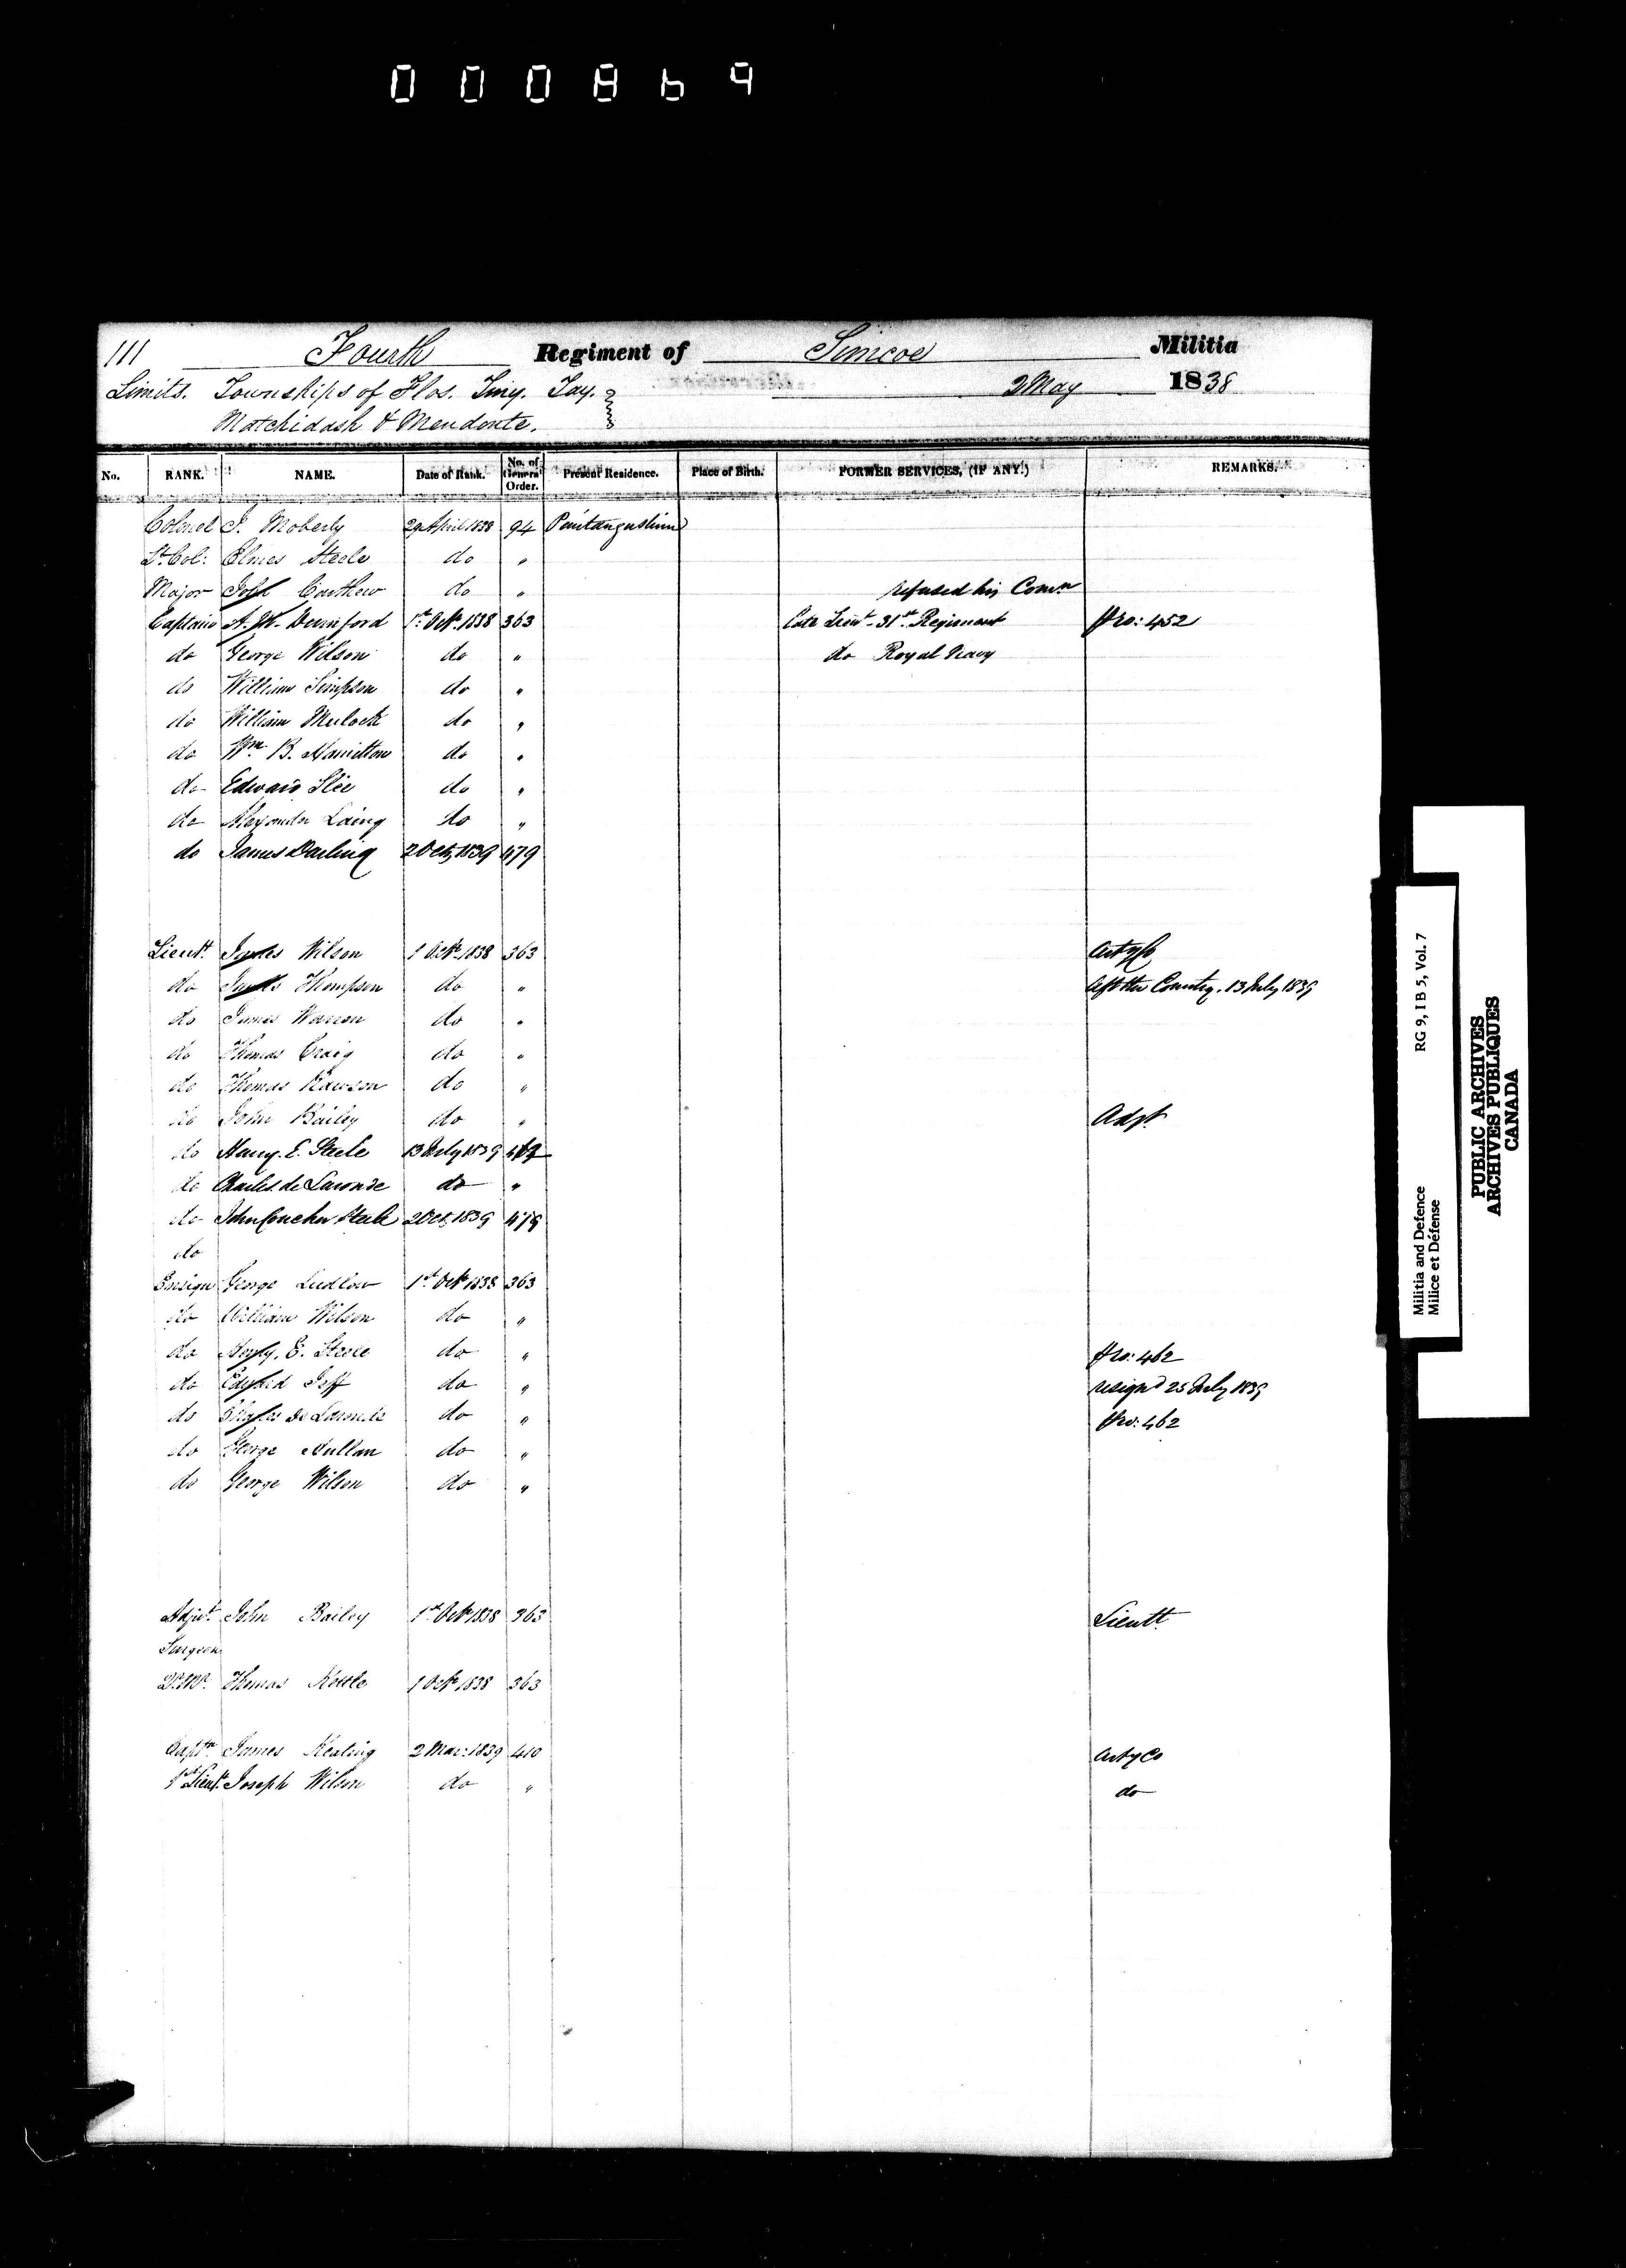 000869
111 Fourth Regiment of Simcoe Militia
Limits. Townships of Flos. Tiny. Tay. 2 May 1838
Matchidash & Mendonte.
No. RANK. NAME. Date of Rank. No. of General Order. Present Residence. Place of Birth. FORMER SERVICES, (IF ANY.) REMARKS.
Colonel J. Moberly 29 April 1838 94
Lt. Col: Elmes Steele do "
Major John Carthew do " refused his Comn
Captain Dunford 1st Octr. 1838 363 late Lieut. 31st. Regiment Pro: 452
do George Wilson do " do Royal Navy
do William Simpson do "
do William Mulock do "
do Wm. B. Hamilton do "
do Edward Slee do "
do Alexander Laing do "
do James Darling 2 Oct, 1839 479
Lieut. James Wilson 1 Octr. 1838 363 Arty Co
do James Thompson do " left the Country. 13 July 1839
do James Warren do "
do Thomas Craig do "
do Thomas Rawson do "
do John Bailey do " Adjt
do Henry. E. Steele 13 July 1839
do Charles de Laronde do "
do John Coucher Steele 2 Oct, 1839 479
do
Ensign George Ludlow 1st. Octr 1838 363
do William Wilson do "
do Henry. E. Steele do " Pro: 462
do Edward Jeff do " resignd 25 July 1839
do Charles de Laronde do " Pro: 462
do George do "
do George Wilson do "
Adjut. John Bailey 1st Octr 1838 363 Lieutt.
Surgeon
Qr. Mr. Thomas 1 Octr 1838 363
Captn. James Keating 2 Mar: 1839 410 Arty Co
1st Lieut. Joseph Wilson do " do
RG 9, I B 5, Vol. 7
Militia and Defence
Milice et Défense
PUBLIC ARCHIVES
ARCHIVES PUBLIQUES
CANADA